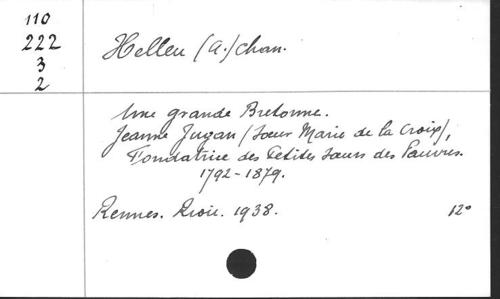 110
222
3
2
Helleu (A.) chan.
Une grande Bretonne.
Jeanne Jugan (Soeur Marie de la Croix),
Fondatrice des Petites Soeurs des Pauvres.
1792-1879.
Rennes. Riou. 1938. 12°